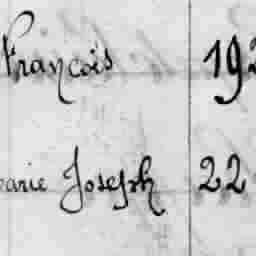 François 192
Marie Joseph 22